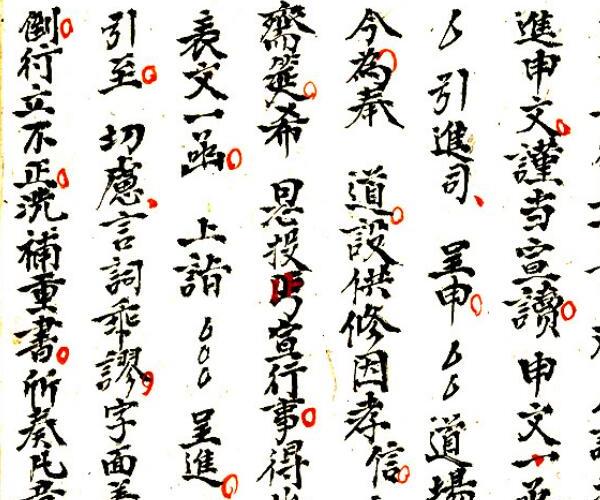 進申文謹当宣讀申文一函
引進司呈申道場
今為奉道設供修因孝信
齋筵希恩投宣行事得
表文一函上詣呈進
引至切慮言詞乖謬字面差
倒行立不正洗補重書所奏凡